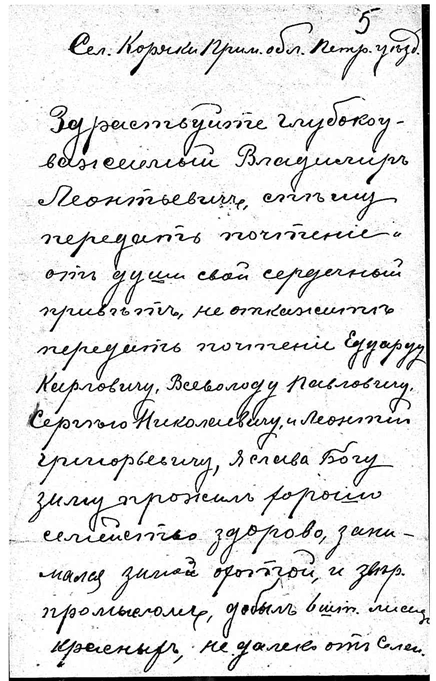 5
Сел. Коряки Прим. обл. Петр. уѣзд.
Здраствуйте глубокоу-
важаемый Владимиръ
Леонтьевичъ, спѣшу
передать почтеніе и
отъ души свой сердечный
привѣтъ, не откажитѣ
передать почтеніе Едуарду
Карловичу, Всеволоду Павловичу,
Сергѣю Николаевичу, и Леонтій
Григорьевичу, Я слава Богу
зиму прожилъ хорошо
семейство здорово, зани-
мался зимой охотой, и звѣр.
промысломъ, добылъ 6 шт. лисиц
красныхъ, не далеко отъ Селен.